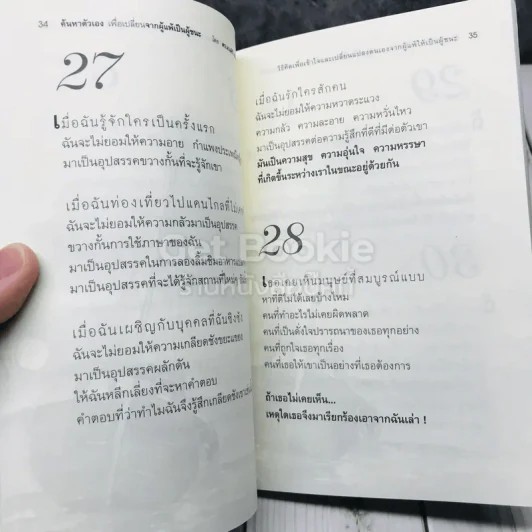 34 ค้นหาตัวเอง เพื่อเปลี่ยนจากผู้แพ้เป็นผู้ชนะ
27
เมื่อฉันรู้จักใครเป็นครั้งแรก
ฉันจะไม่ยอมให้ความอาย กำแพงประเพณี
มาเป็นอุปสรรคขวางกั้นที่จะรู้จักเขา
เมื่อฉันท่องเที่ยวไปแดนไกลที่ไม่
ฉันจะไม่ยอมให้ความกลัวมาเป็นอุปสรรค
ขวางกั้นการใช้ภาษาของฉัน
มาเป็นอุปสรรคในการลองลิ้มชิมอาหาร
มาเป็นอุปสรรคที่จะได้รู้จักสถานที่ใหม่
เมื่อฉันเผชิญกับบุคคลที่ฉันชิงชัง
ฉันจะไม่ยอมให้ความเกลียดชังขยะแขยง
มาเป็นอุปสรรคผลักดัน
ให้ฉันหลีกเลี่ยงที่จะหาคำตอบ
คำตอบที่ว่าทำไมฉันจึงรู้สึกเกลียดชังเขา
วิธีคิดเพื่อเข้าใจและเปลี่ยนแปลงตนเองจากผู้แพ้ให้เป็นผู้ชนะ 35
เมื่อฉันรักใครสักคน
ฉันจะไม่ยอมให้ความหวาดระแวง
ความกลัว ความละอาย ความหวั่นไหว
มาเป็นอุปสรรคต่อความรู้สึกที่ดีที่มีต่อตัวเขา
มันเป็นความสุข ความอุ่นใจ ความหรรษา
ที่เกิดขึ้นระหว่างเราในขณะอยู่ด้วยกัน
28
เธอเคยเห็นมนุษย์ที่สมบูรณ์แบบ
หาที่ติไม่ได้เลยบ้างไหม
คนที่ทำอะไรไม่เคยผิดพลาด
คนที่เป็นดั่งใจปรารถนาของเธอทุกอย่าง
คนที่ถูกใจเธอทุกเรื่อง
คนที่เธอให้เขาเป็นอย่างที่เธอต้องการ
ถ้าเธอไม่เคยเห็น...
เหตุใดเธอจึงมาเรียกร้องเอาจากฉันเล่า !
Bookie